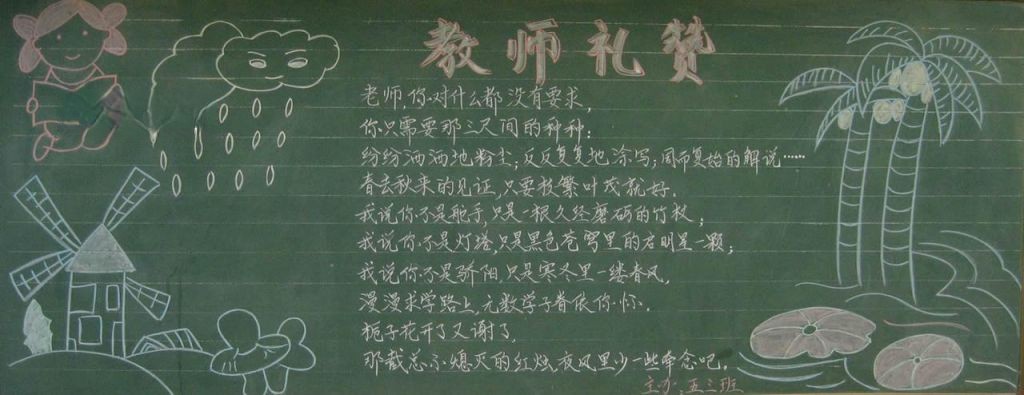 教师礼赞
老师,你对什么都没有要求,
你只需要那三尺间的种种:
纷纷洒洒地粉尘;反反复复地涂写;周而复始的解说……
春去秋来的见证,只要枝繁叶茂就好.
我说你不是舵手,只是一根久经磨砺的竹杖;
我说你不是灯塔,只是黑色苍穹里的启明星一颗;
我说你不是骄阳,只是寒冬里一缕春风,
漫漫求学路上,无数学子眷依你怀.
栀子花开了又谢了,
那截总不熄灭的红烛,夜风里少一些牵念吧。
主办:五三班